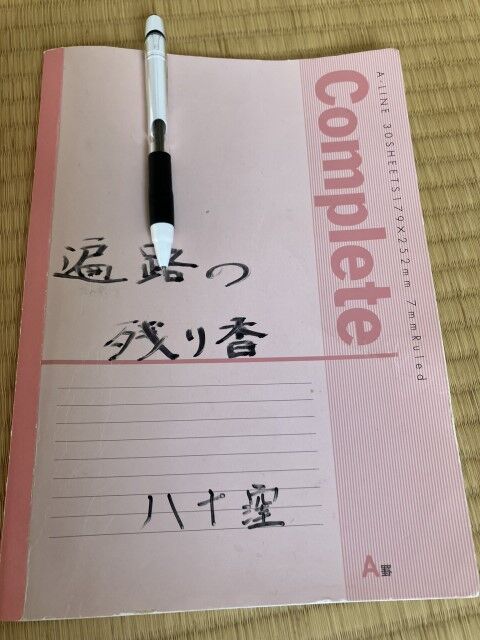 Complete
A・LINE 30SHEETS 179×252mm 7mm Ruled
遍路の
残り香
八十窪
A罫